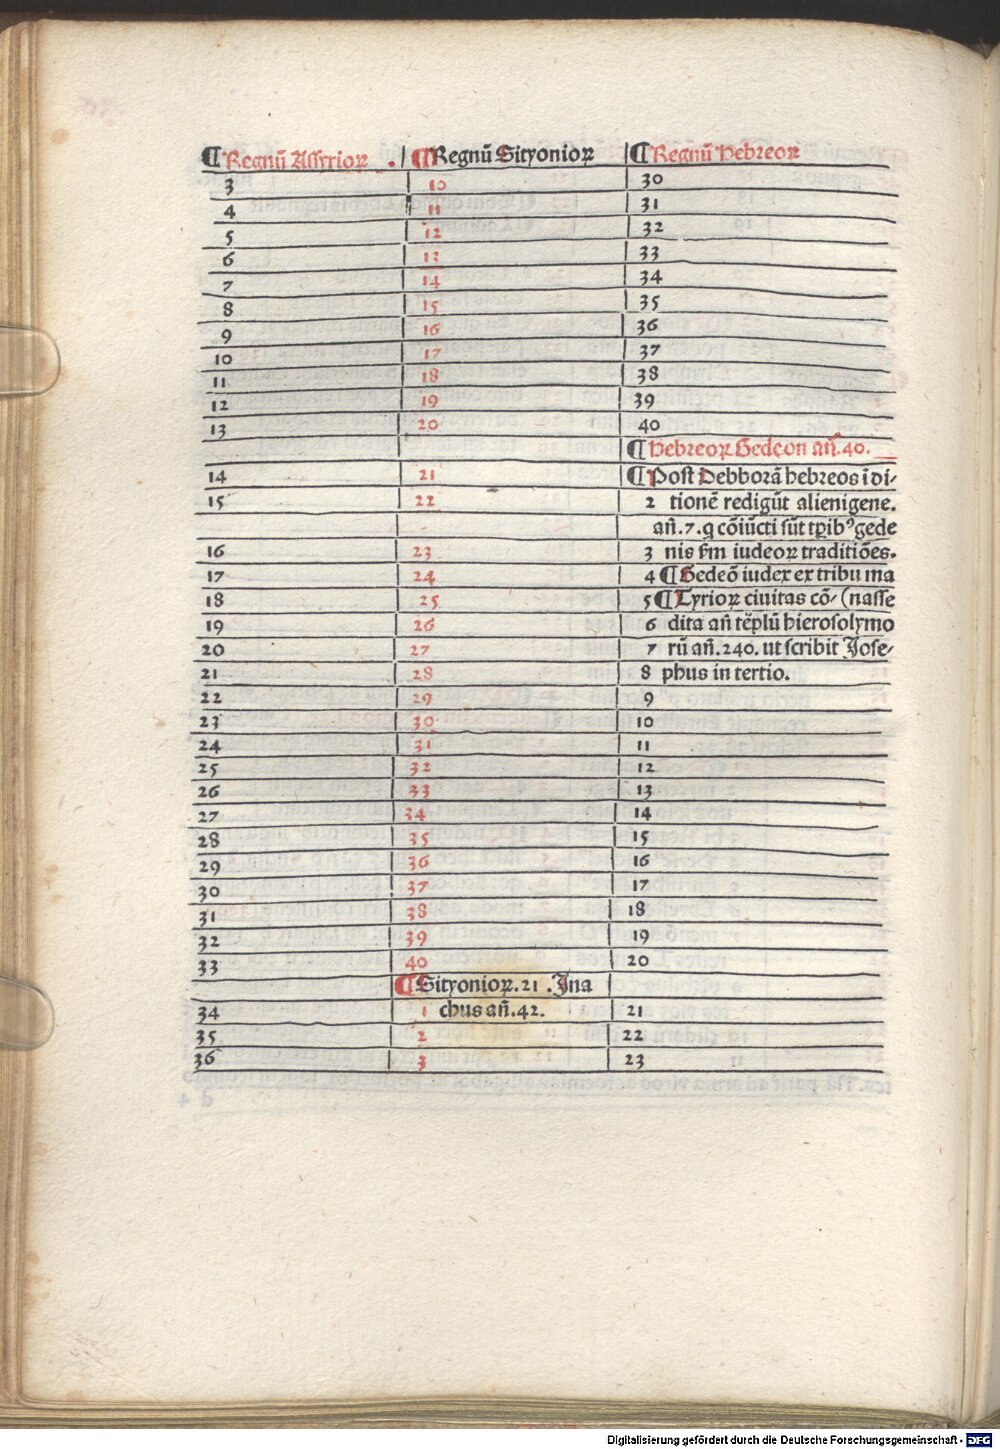 ¶ Regnū Assyrioꝝ. ¶ Regnū Sityonioꝝ ¶ Regnū Hebreoꝝ
3 10 30
4 11 31
5 12 32
6 13 33
7 14 34
8 15 35
9 16 36
10 17 37
11 18 38
12 19 39
13 20 40
¶ Hebreoꝝ Gedeon añ. 40.
14 21 ¶ Post Debborā hebreos ī di-
15 22 2 tionē redigūt alienigene.
añ. 7. q cōiūcti sūt tꝑibꝰ gede
16 23 3 nis ẜm iudeoꝝ traditiōes.
17 24 4 ¶ Gedeō iudex ex tribu ma
18 25 5 ¶ Tyrioꝝ ciuitas cō- (nasse
19 26 6 dita añ tēplū hierosolymo
20 27 7 rū añ. 240. ut scribit Jose-
21 28 8 phus in tertio.
22 29 9
23 30 10
24 31 11
25 32 12
26 33 13
27 34 14
28 35 15
29 36 16
30 37 17
31 38 18
32 39 19
33 40 20
¶ Sityonioꝝ. 21. Ina
34 1 chus añ. 42. 21
35 2 22
36 3 23
Digitalisierung gefördert durch die Deutsche Forschungsgemeinschaft - DFG